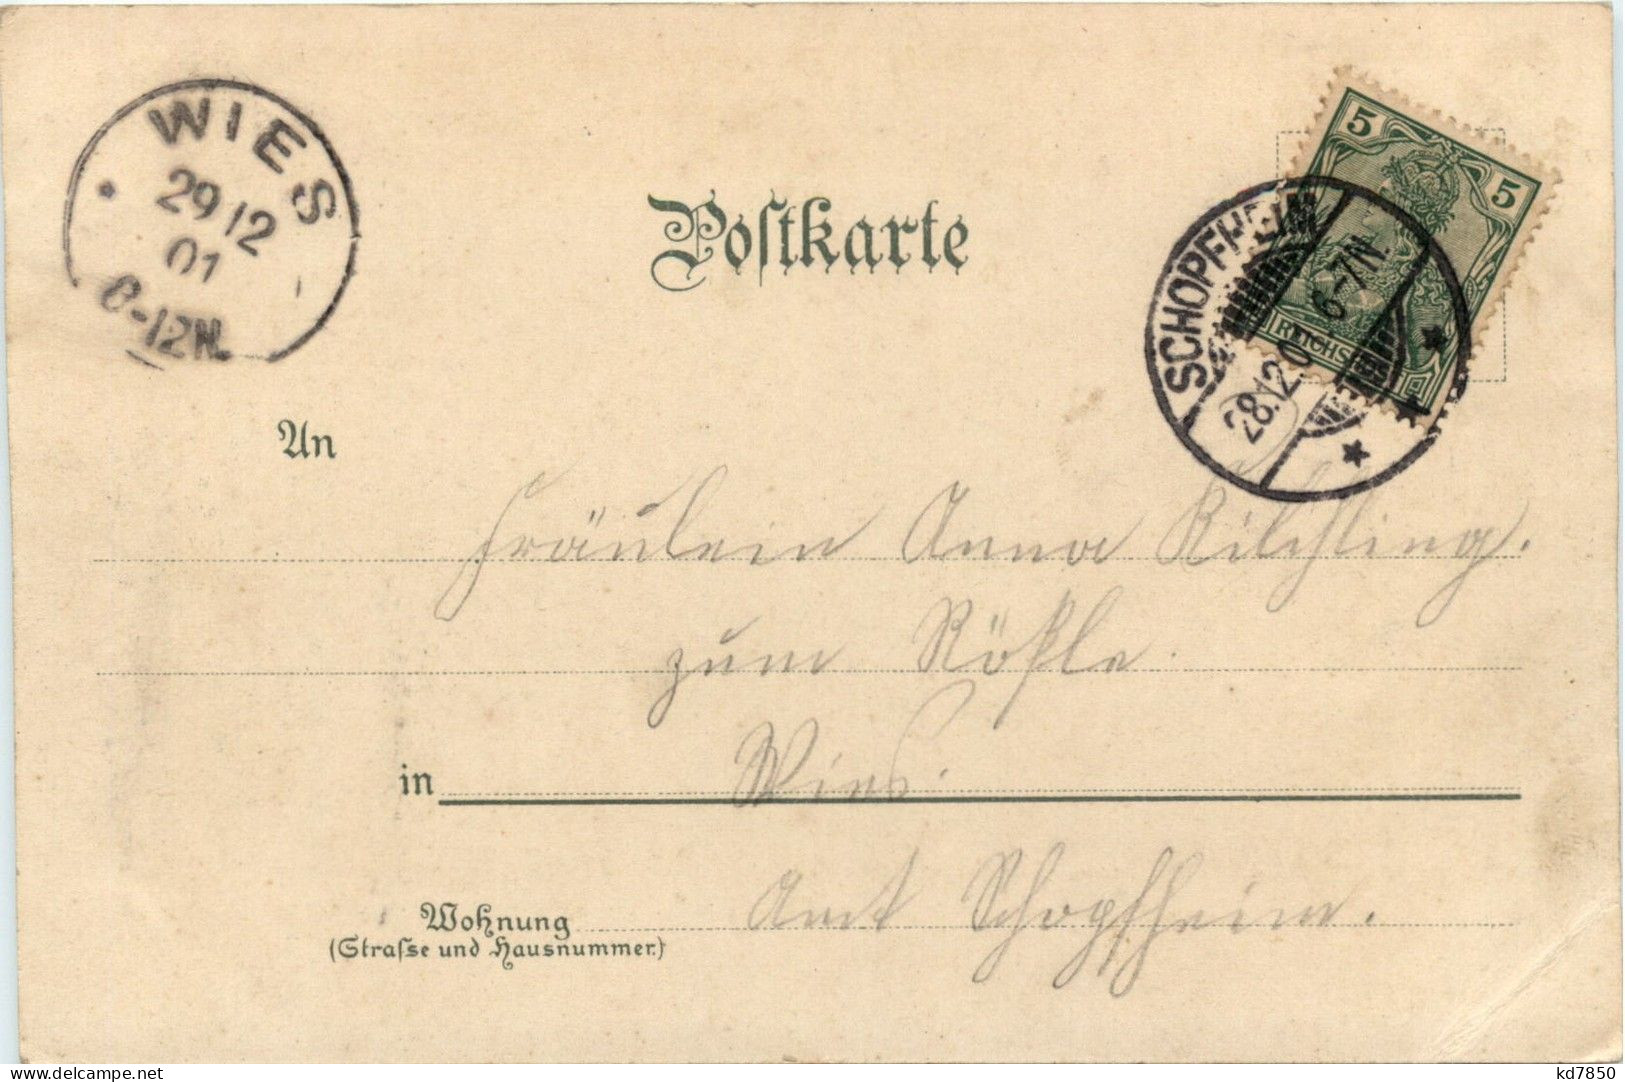 WIES
29 12
01
8-12N.
Postkarte
5 5
REICHSPOST
SCHOPFHEIM
28.12.0
6-7N.
An
Fräulein Anna Kilchling.
zum Rößle.
in Wies.
Amt Schopfheim.
Wohnung
(Straſse und Hausnummer.)
delcampe.net
kd7850